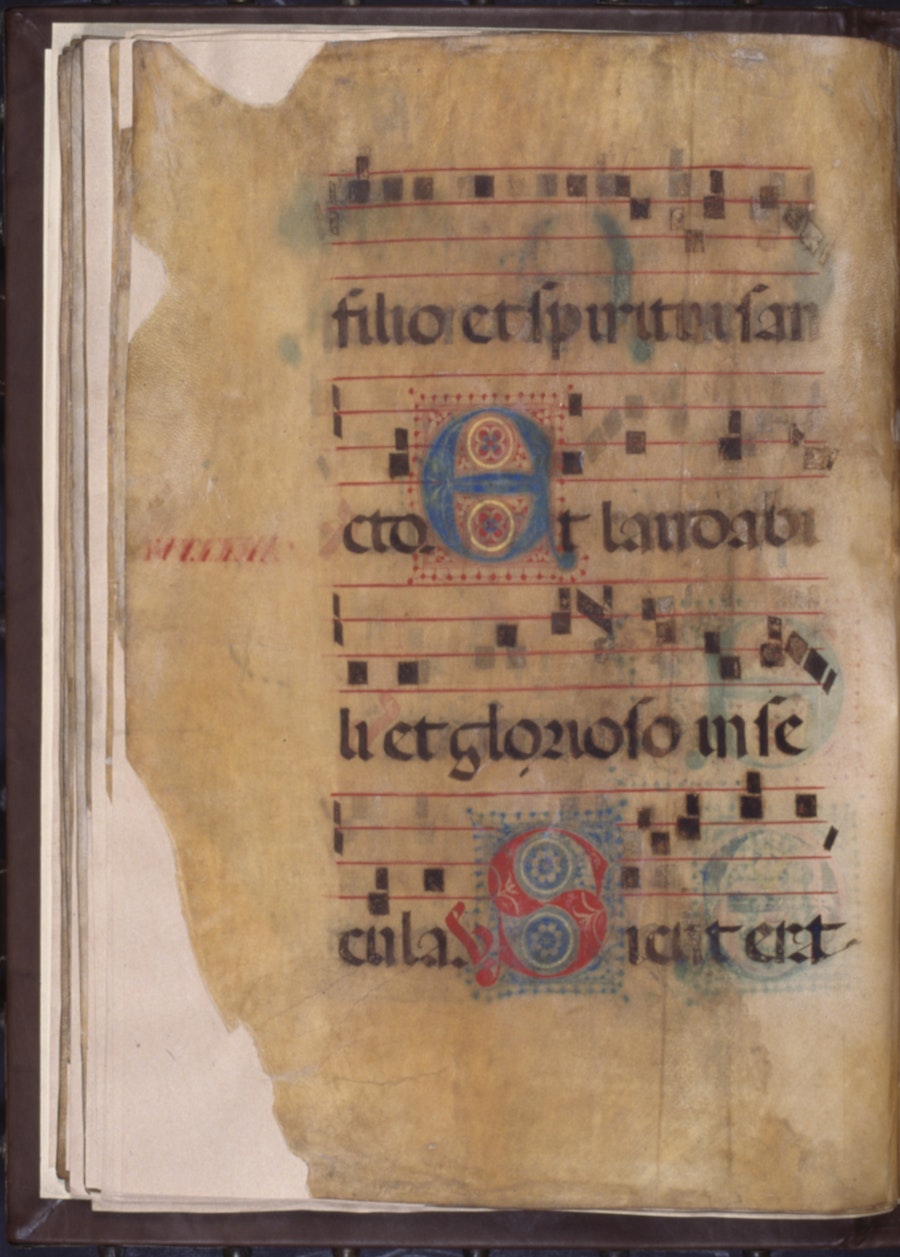 filio et spiritui san
cto. Et laudabi
li et glorioso in se
cula. ℣ Sicut erat